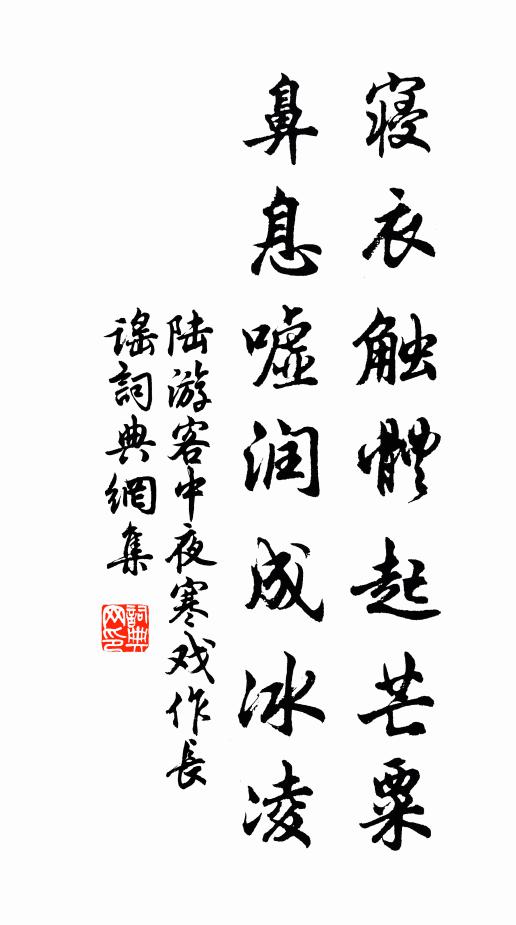 寝衣触體起芒粟
鼻息嘘润成冰凌
陆游客中夜寒戏作長
謠詞典網集
詞典
网印